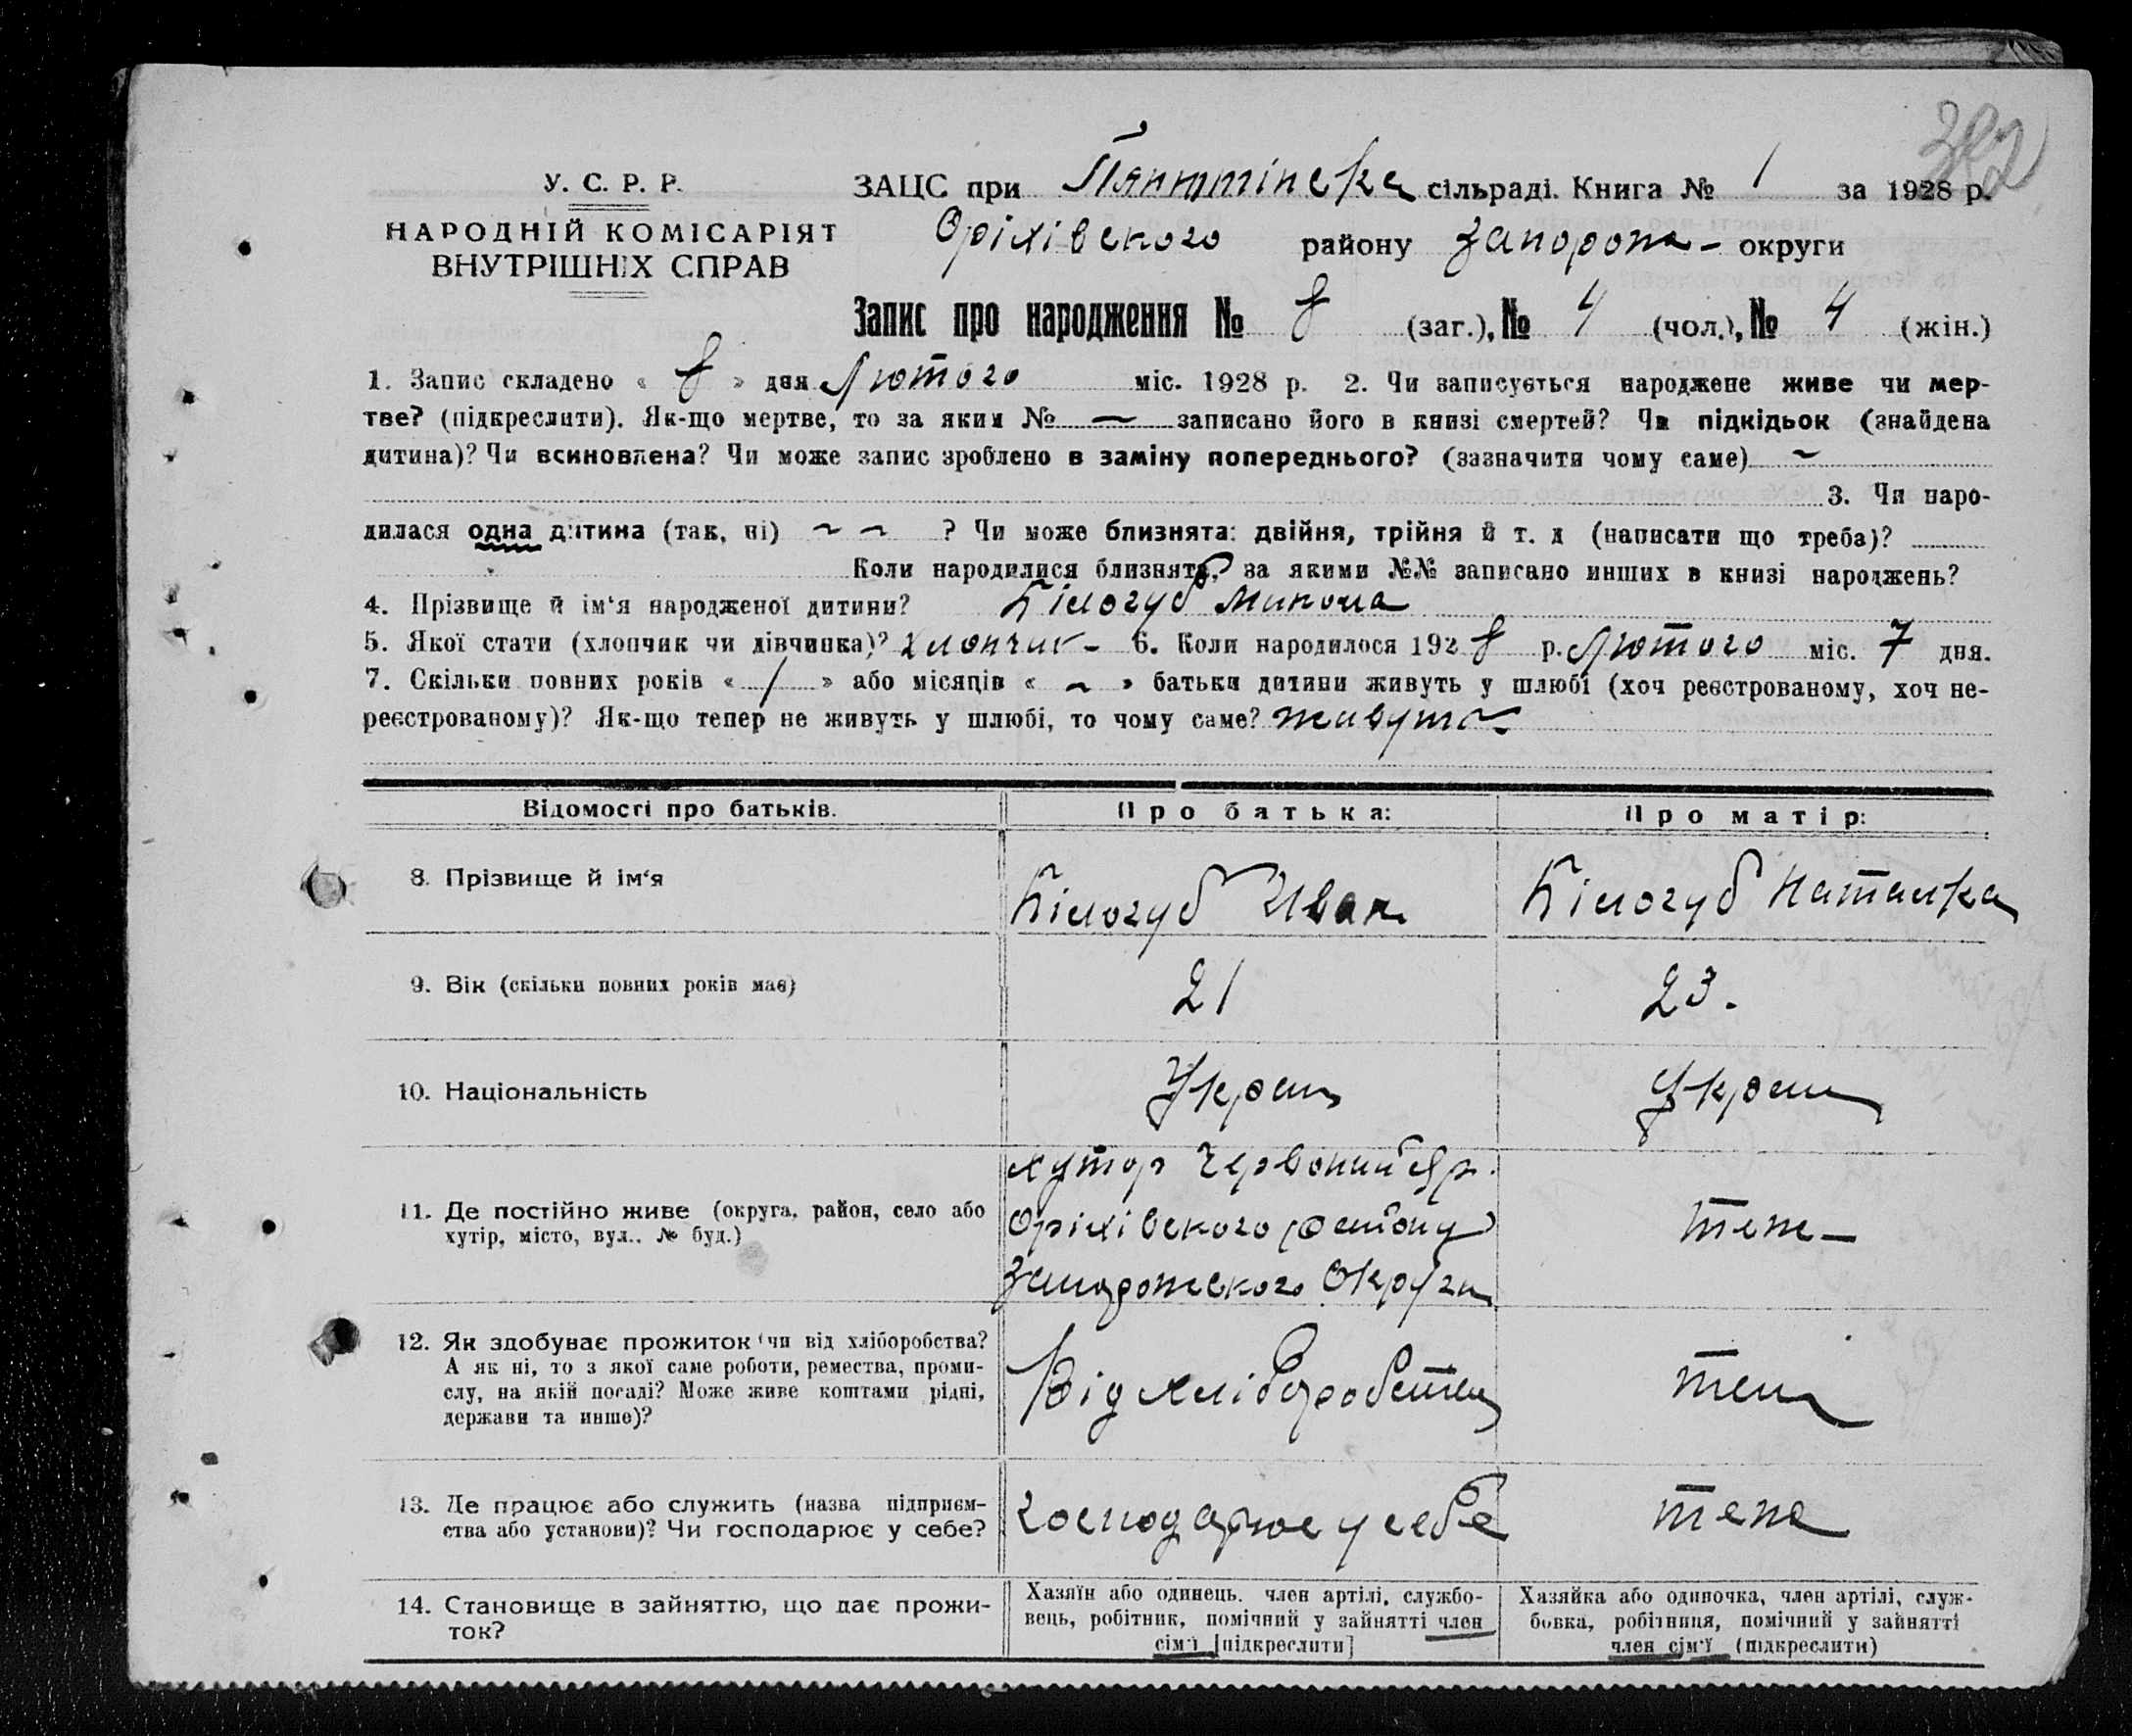 382
У. С. Р. Р.
НАРОДНІЙ КОМІСАРІЯТ
ВНУТРІШНІХ СПРАВ
ЗАЦС при сільраді. Книга № 1 за 1928 р.
Оріхівского району Запорож- округи
Запис про народження № 8 (заг.), № 4 (чол.), № 4 (жін.)
1. Запис складено « 8 » дня Лютого міс. 1928 р. 2. Чи записується народжене живе чи мер-
тве? (підкреслити). Як-що мертве, то за яким № — записано його в книзі смертей? Чи підкідьок (знайдена
дитина)? Чи всиновлена? Чи може запис зроблено в заміну попереднього? (зазначити чому саме) ~
3. Чи наро-
дилася одна дитина (так, ні) ~ ~ ? Чи може близнята: двійня, трійня й т. д (написати що треба)?
Коли народилися близнята, за якими №№ записано инших в книзі народжень?
4. Прізвище й ім‘я народженої дитини? Білогуб Микола
5. Якої стати (хлопчик чи дівчинка)? Хлопчик - 6. Коли народилося 1928 р. Лютого міс. 7 дня.
7. Скільки повних років « 1 » або місяців « ~ » батьки дитини живуть у шлюбі (хоч реєстрованому, хоч не-
реєстрованому)? Як-що тепер не живуть у шлюбі, то чому саме? живуть
Відомості про батьків. Про батька: Про матір:
8. Прізвище й ім‘я Білогуб Иван Білогуб Наталка
9. Вік (скільки повних років має) 21 23.
10. Національність Украш Украш
11. Де постійно живе (округа, район, село або
хутір, місто, вул.. № буд.)
хутор Червоний Яр.
Оріхівского району
Запорожского Округи
теж-
12. Як здобуває прожиток (чи від хліборобства?
А як ні, то з якої саме роботи, ремества, проми-
слу, на якій посаді? Може живе коштами рідні,
держави та инше)?
Від хліборобства
теж
13. Де працює або служить (назва підприєм-
ства або установи)? Чи господарює у себе?
господарює у себе
теже
14. Становище в зайняттю, що дає прожи-
ток?
Хазяїн або одинець. член артілі, службо-
вець, робітник, помічний у зайнятті член
сім‘ї [підкреслити]
Хазяйка або одиночка, член артілі, служ-
бовка, робітниця, помічний у зайнятті
член сім‘ї (підкреслити)